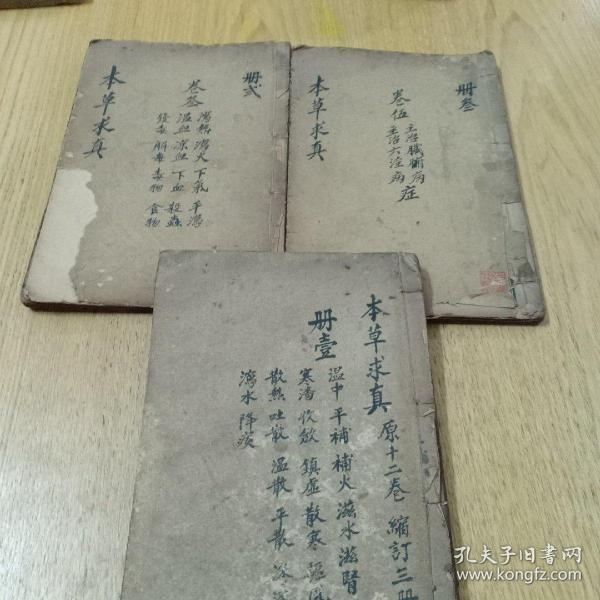 册弍
卷叁
瀉熱 瀉火 下氣 平瀉
溫血 涼血 下血 殺蟲
發毒 解毒 毒物 食物
本草求真
册叁
卷伍
主治臟腑病
主治六淫病
症
本草求真
本草求真
原十二卷 縮訂三册
册壹
溫中 平補 補火 滋水 滋腎
寒濇 收斂 鎮虛 散寒
散熱 吐散 溫散 平散
瀉水 降痰
孔夫子旧书网
www.kongfz.com